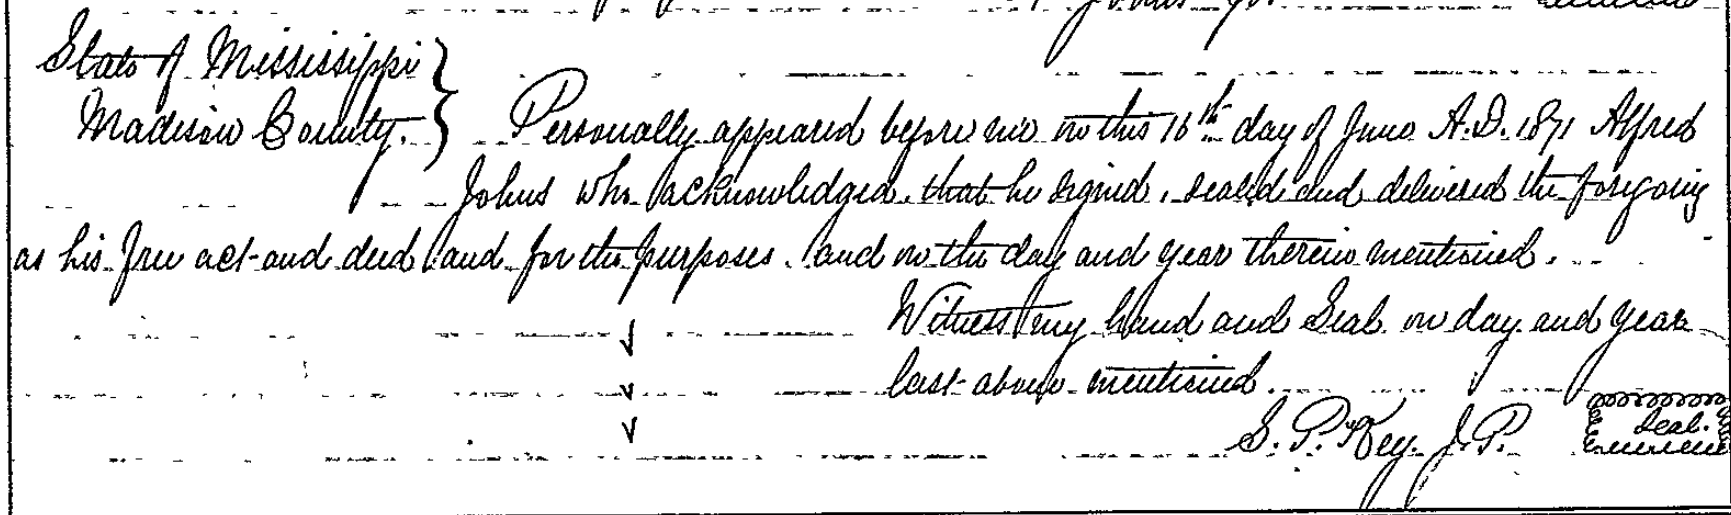 State of Mississippi
Madison County. Personally appeared before me on this 16th day of June A.D. 1871 Alfred
Johns who acknowledged that he signed, sealed and delivered the foregoing
as his free act and deed and for the purposes, and on the day and year therein mentioned.
Witness my hand and Seal on day and year
last above mentioned.
S. P. Key. J.P. Seal.